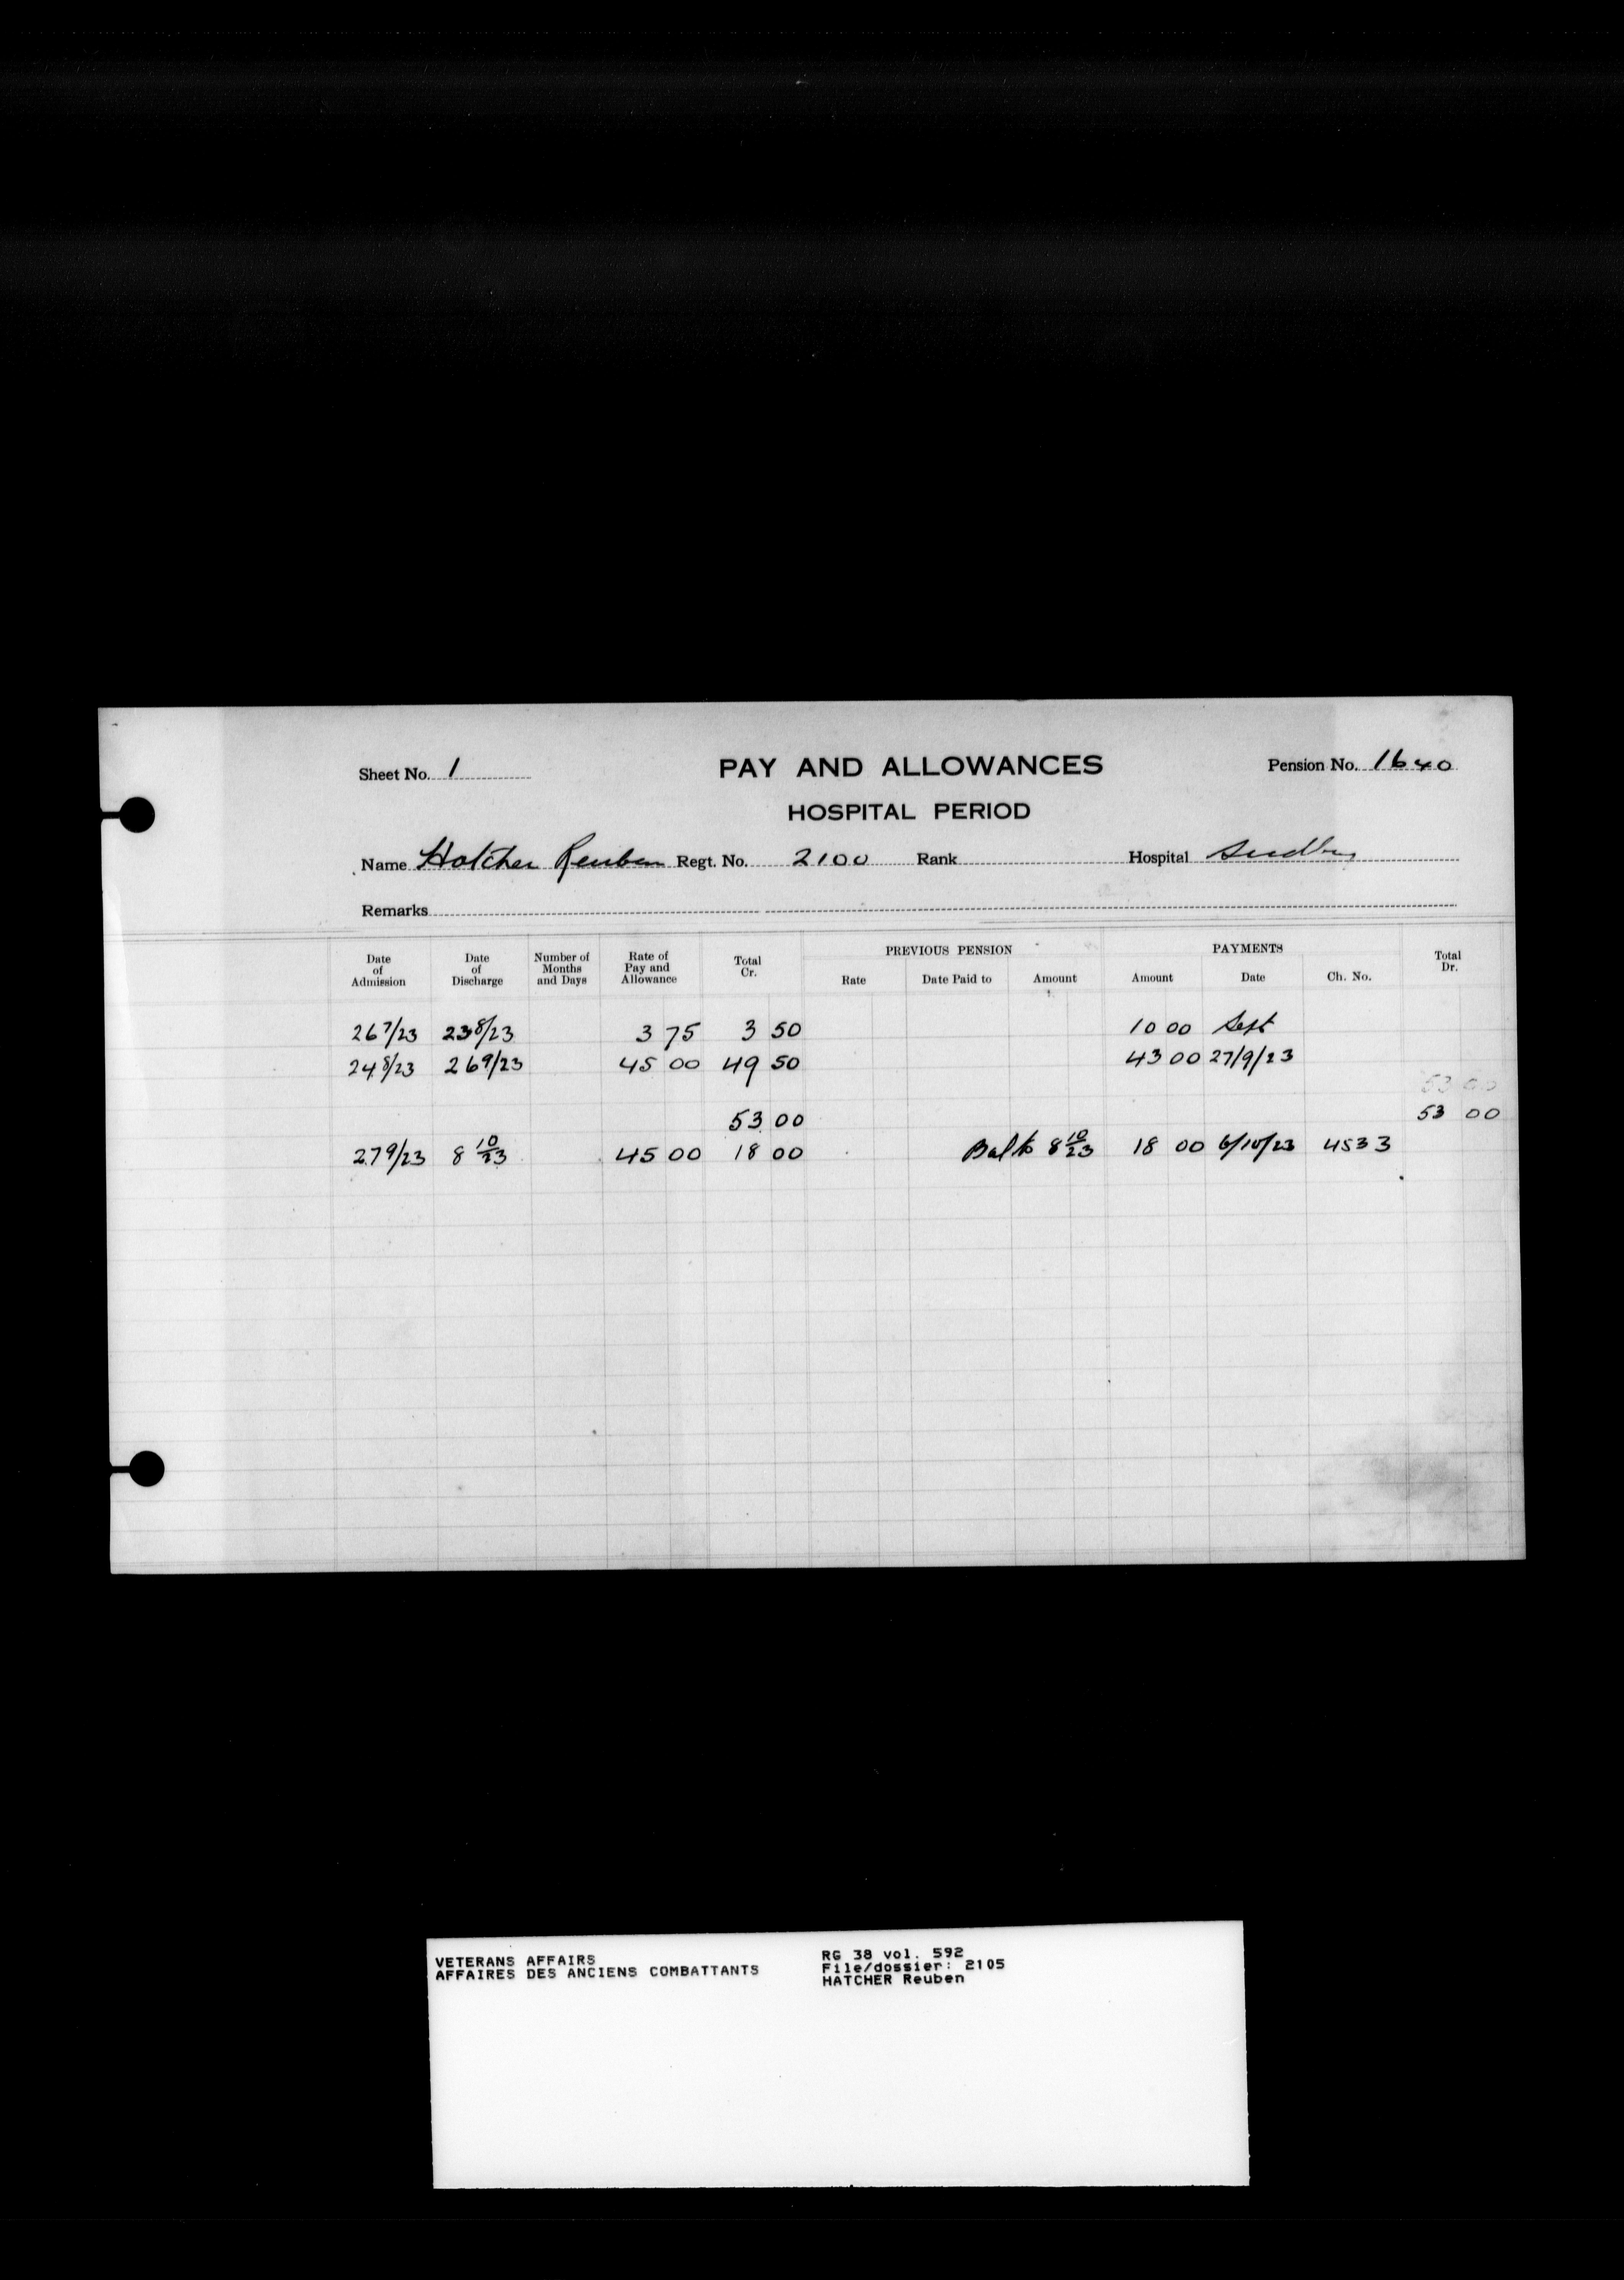 Sheet No. 1 PAY AND ALLOWANCES Pension No. 1640
HOSPITAL PERIOD
Name Hatcher Reuben Regt. No. 2100 Rank Hospital Sudbury
Remarks
Date of Admission Date of Discharge Number of Months and Days Rate of Pay and Allowance Total Cr. PREVIOUS PENSION Rate Date Paid to Amount PAYMENTS Amount Date Ch. No. Total Dr.
26 7/23 23 8/23 3 75 3 50 10 00 Sept
24 8/23 26 9/23 45 00 49 50 43 00 27/9/23
53 00
53 00 53 00
27 9/23 8 10/23 45 00 18 00 Bal to 8 10/23 18 00 6/10/23 4533
VETERANS AFFAIRS RG 38 vol. 592
AFFAIRES DES ANCIENS COMBATTANTS File/dossier: 2105
HATCHER Reuben